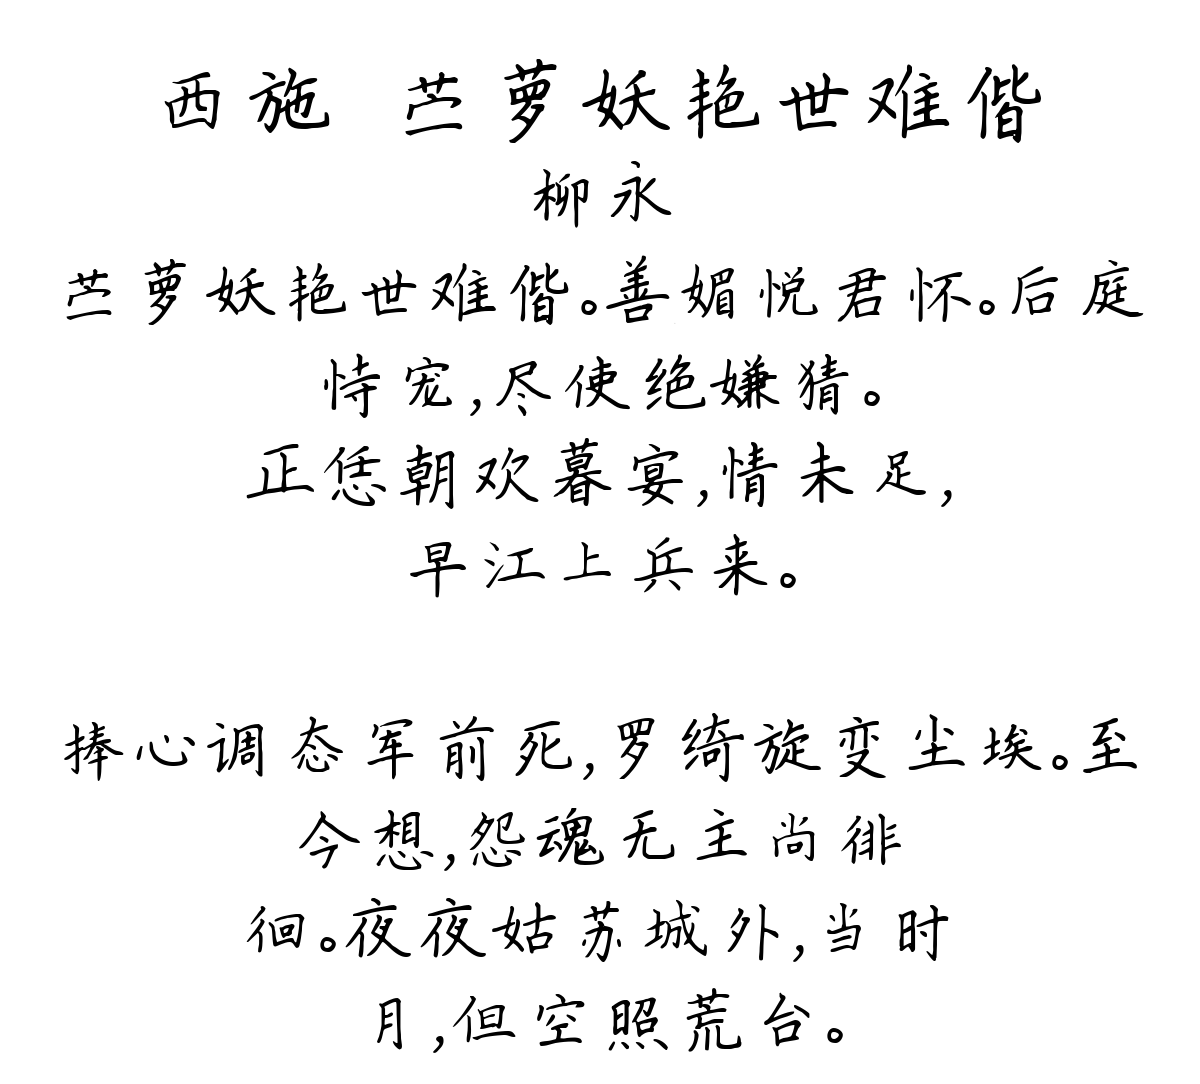 西施 苎萝妖艳世难偕
柳永
苎萝妖艳世难偕。善媚悦君怀。后庭
恃宠,尽使绝嫌猜。
正恁朝欢暮宴,情未足,
早江上兵来。
捧心调态军前死,罗绮旋变尘埃。至
今想,怨魂无主尚徘
徊。夜夜姑苏城外,当时
月,但空照荒台。